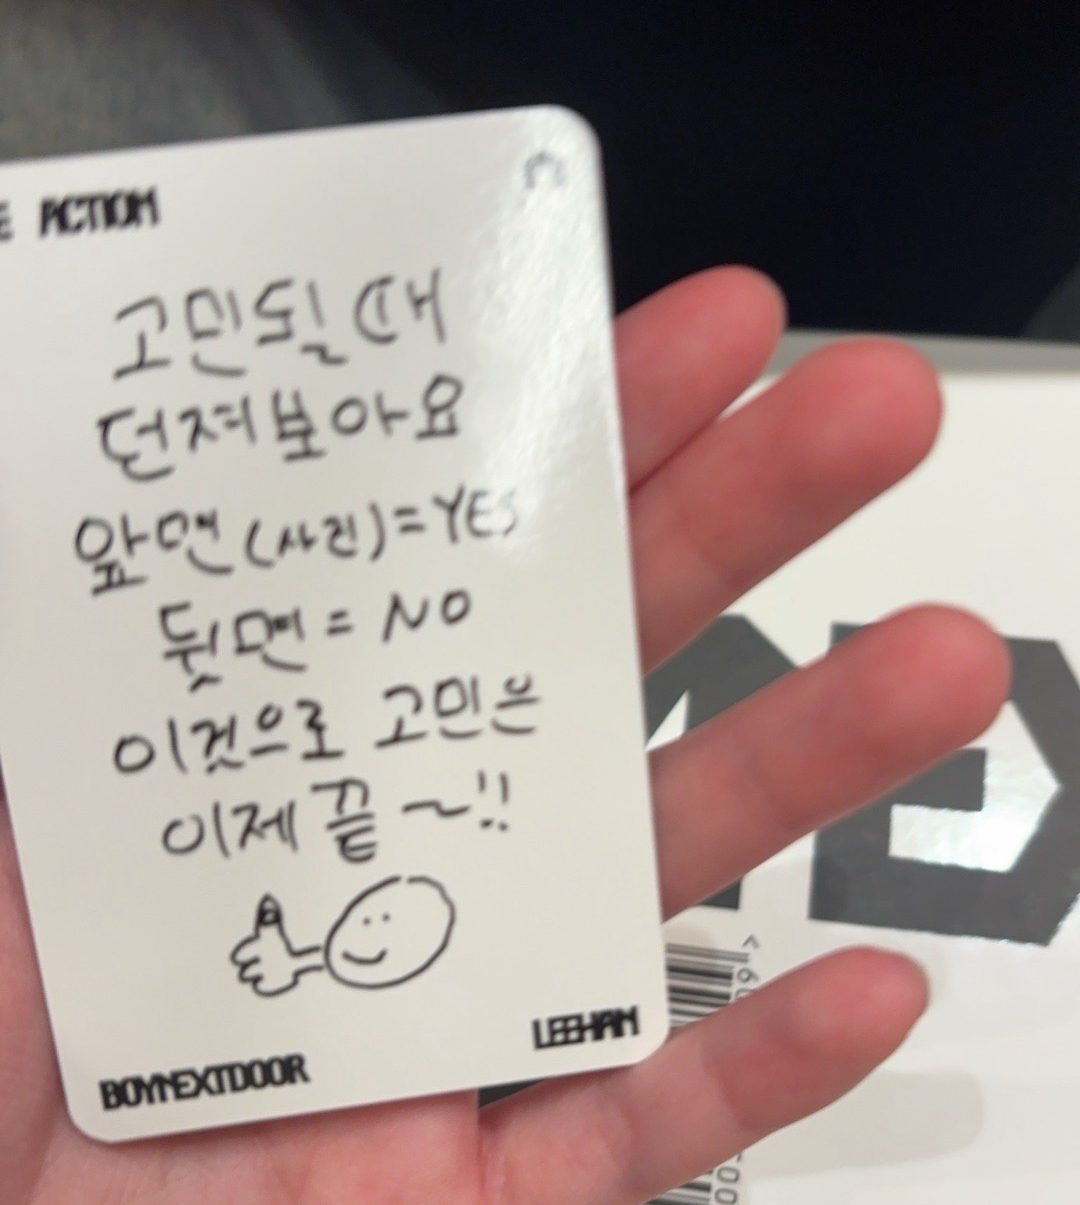 ACTION
고민될 때
던져보아요
앞면(사진)=YES
뒷면 = NO
이것으로 고민은
이제 끝~!!
LEEHAN
BOYNEXTDOOR